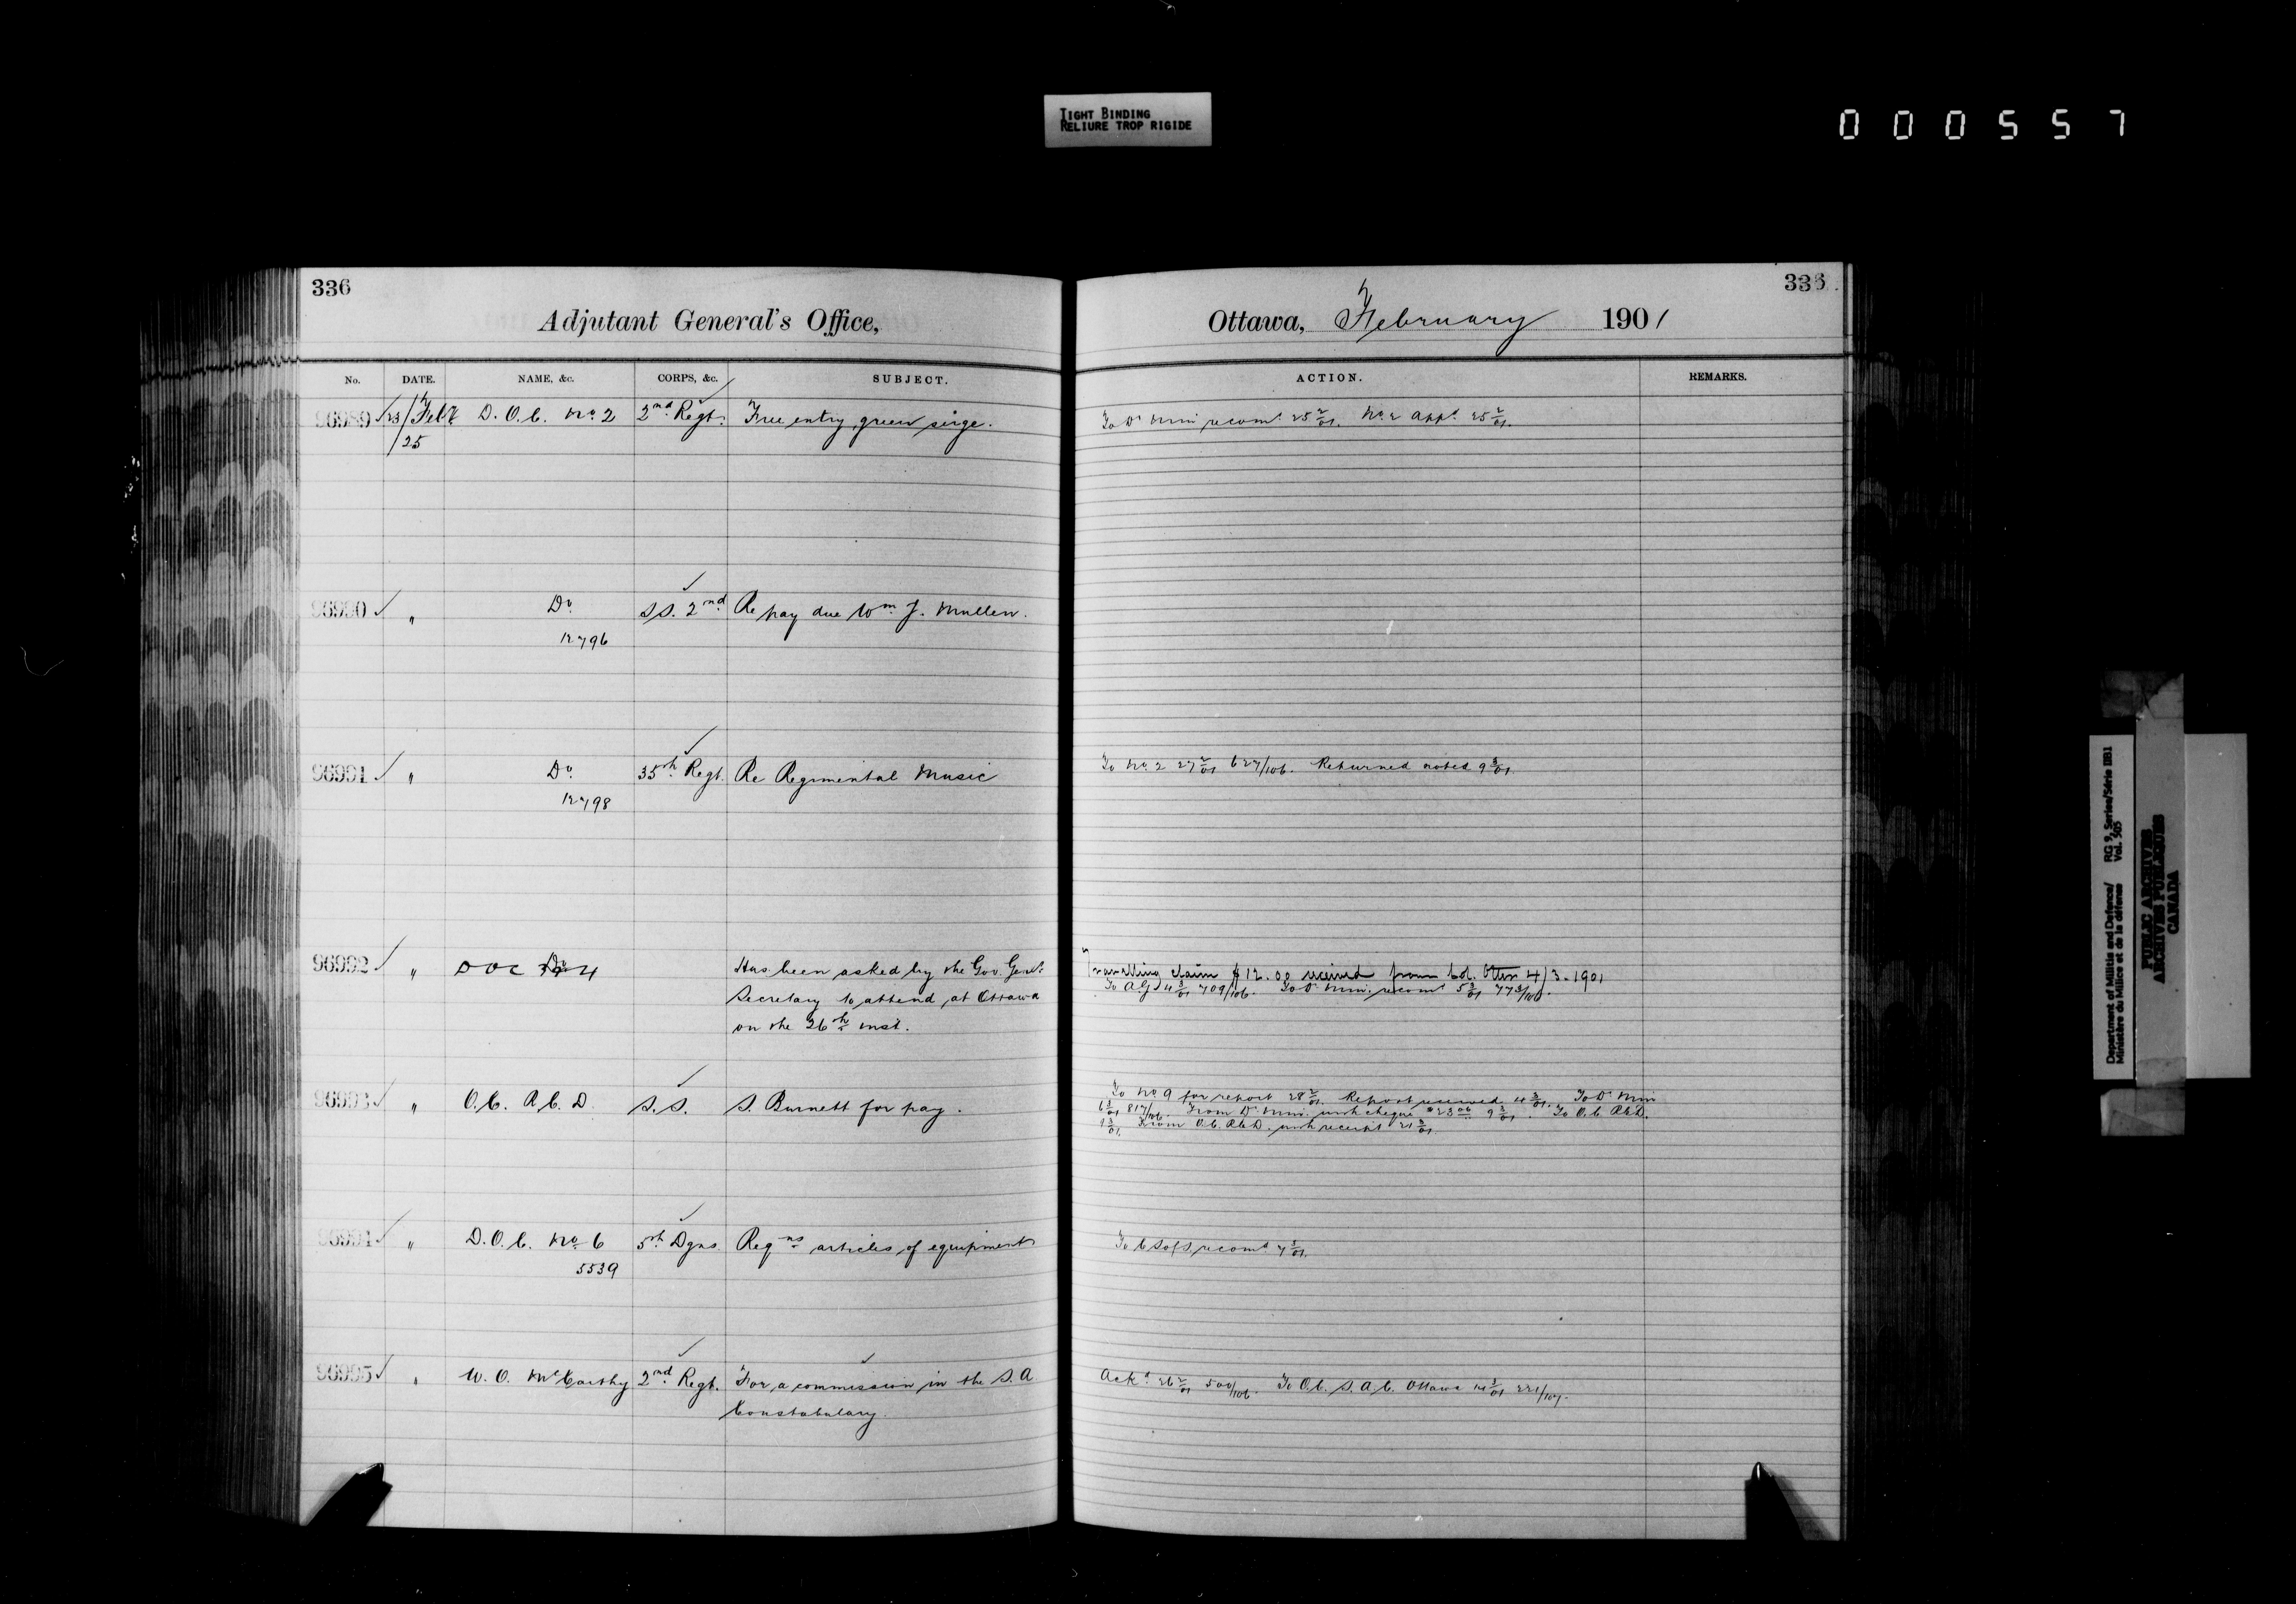 TIGHT BINDING
RELIURE TROP RIGIDE
000557
336
Adjutant General's Office,
No. DATE. NAME, &c. CORPS, &c. SUBJECT.
96989 23/Feb/25 D.O.C. No 2 2nd Regt. Free entry, green serge.
96990 " Do SS. 2nd Re pay due Wm J. Mullen.
12796
96991 " Do 35th Regt. Re Regimental Music
12798
96992 " DOC 4 Has been asked by the Gov. Genl's
Secretary to attend at Ottawa
on the 26th inst.
96993 " O.C. R.C.D. S.S. S. Burnett for pay.
96994 " D.O.C. No 6 5th Dgns Reqns articles of equipment
5539
96995 " W. O. McCarthy 2nd Regt. For a commission in the S.A.
Constabulary
336
Ottawa, February 1901
ACTION. REMARKS.
To D. Min recomd 25 2/01. No 2 appd 25 2/01.
To No 2 27 2/01 627/106. Returned noted 9 3/01.
Travelling claim $12.00 received from Col. Otter 4/3-1901
To AG 4 3/01 709/106. To D. Min. recomd 5 3/01 773/106.
To No 9 for report 28 2/01. Report received 4 3/01. To D. Min
6 3/01 817/106. From D. Min. with cheque $23 06 9 3/01. To O.C. R.C.D.
9 3/01. From O.C. R.C.D. with receipt 21 3/01.
To C S of S recomd 7 3/01.
Ackd 26 2/01 500/106. To O.C. S.A.C. Ottawa 14 3/01 221/107.
Department of Militia and Defence/ RG 9, Series/Série BB1
Ministère du Milice et de la défense Vol. 505
PUBLIC ARCHIVES
ARCHIVES PUBLIQUES
CANADA